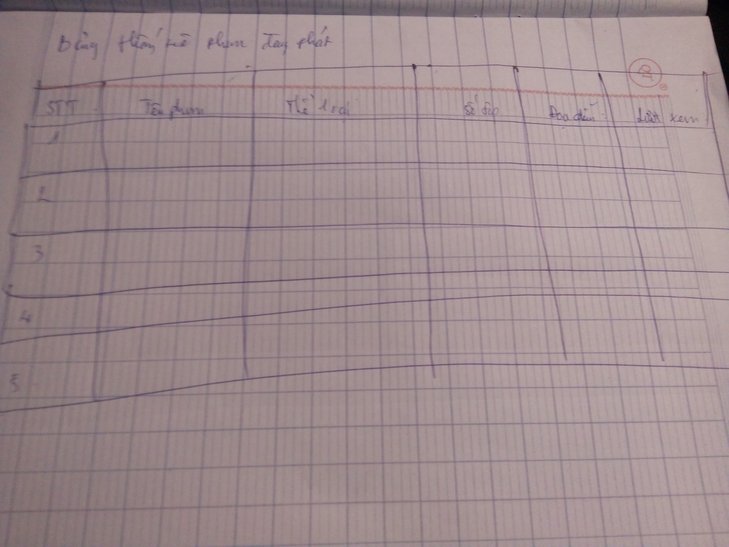 Bảng thống kê phim đang phát
STT Tên phim Thể loại Số tập Đạo diễn Lượt xem
1
2
3
4
5